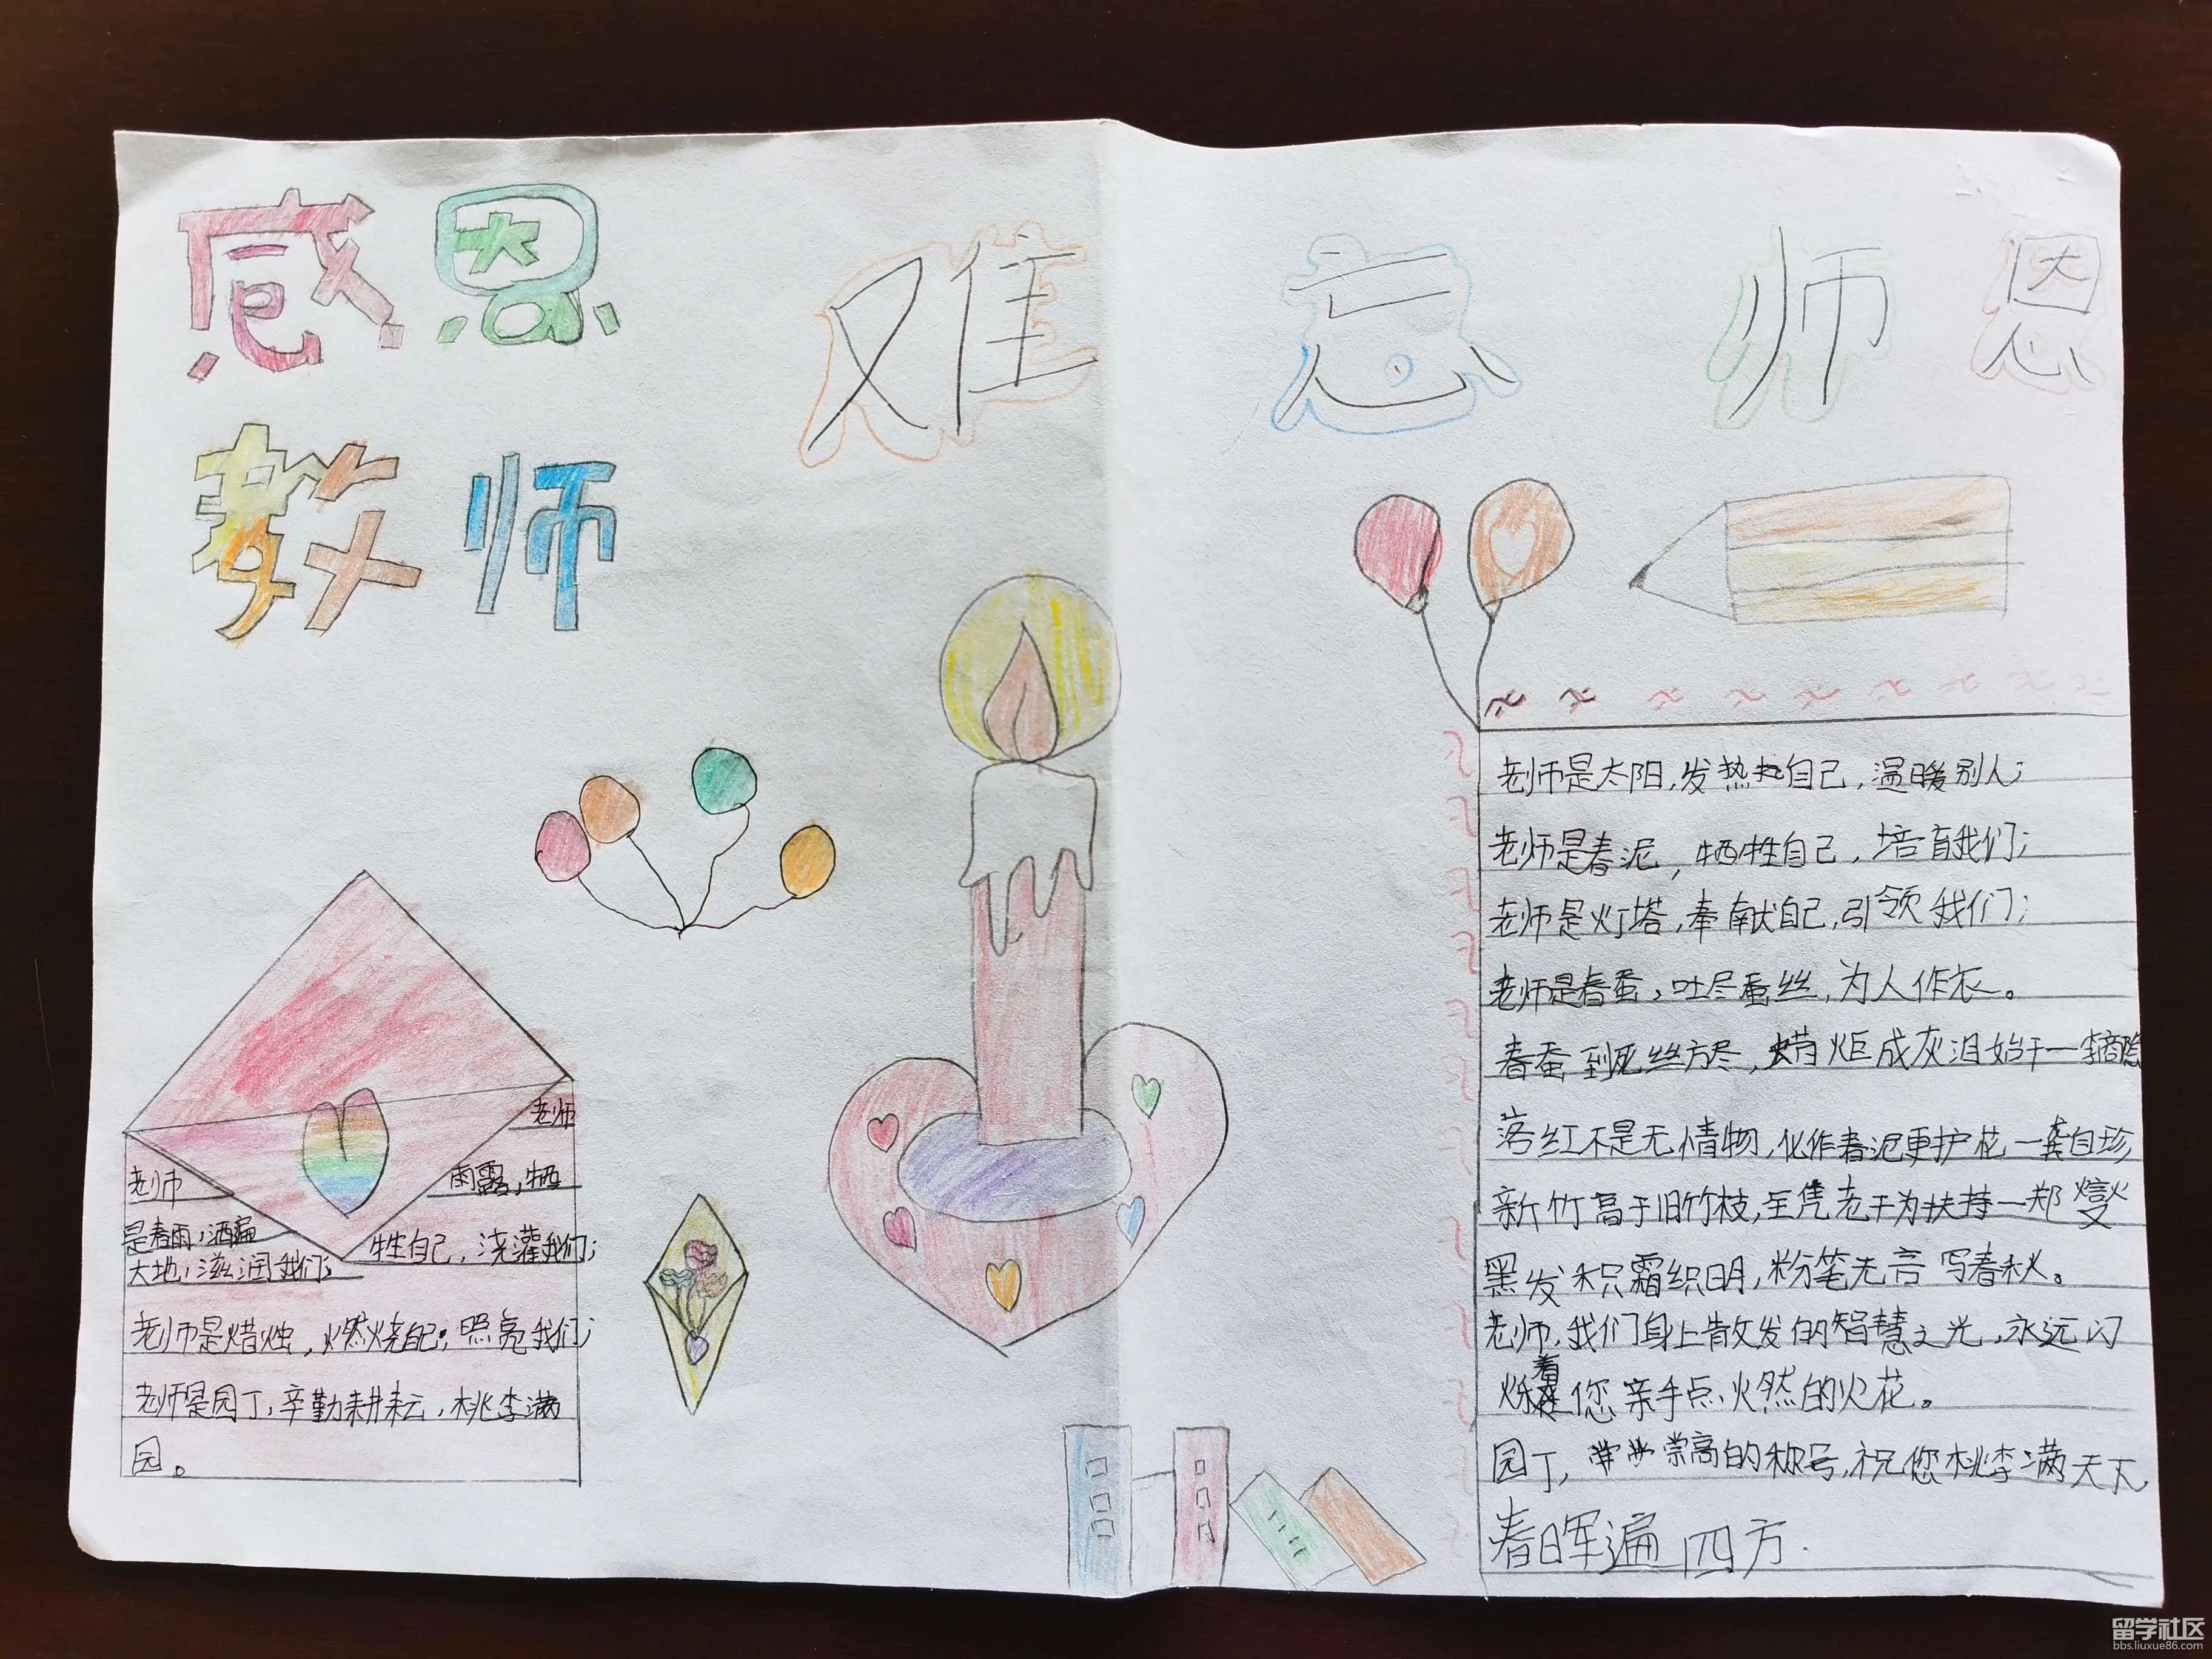 感恩
教师
难忘师恩
老师
是春雨，洒遍
大地，滋润我们；
老师
雨露，牺
牲自己，浇灌我们；
老师是蜡烛，燃烧自己，照亮我们；
老师是园丁，辛勤耕耘，桃李满
园。
老师是太阳，发热自己，温暖别人；
老师是春泥，牺牲自己，培育我们；
老师是灯塔，奉献自己，引领我们；
老师是春蚕，吐尽蚕丝，为人作衣。
春蚕到死丝方尽，蜡炬成灰泪始干一李商隐
落红不是无情物，化作春泥更护花一龚自珍
新竹高于旧竹枝，全凭老干为扶持一郑燮
黑发积霜织日月，粉笔无言写春秋。
老师，我们身上散发的智慧之光，永远闪
烁着您亲手点燃的火花。
园丁，崇高的称号，祝您桃李满天下，
春晖遍四方.
留学社区
bbs.liuxue86.com